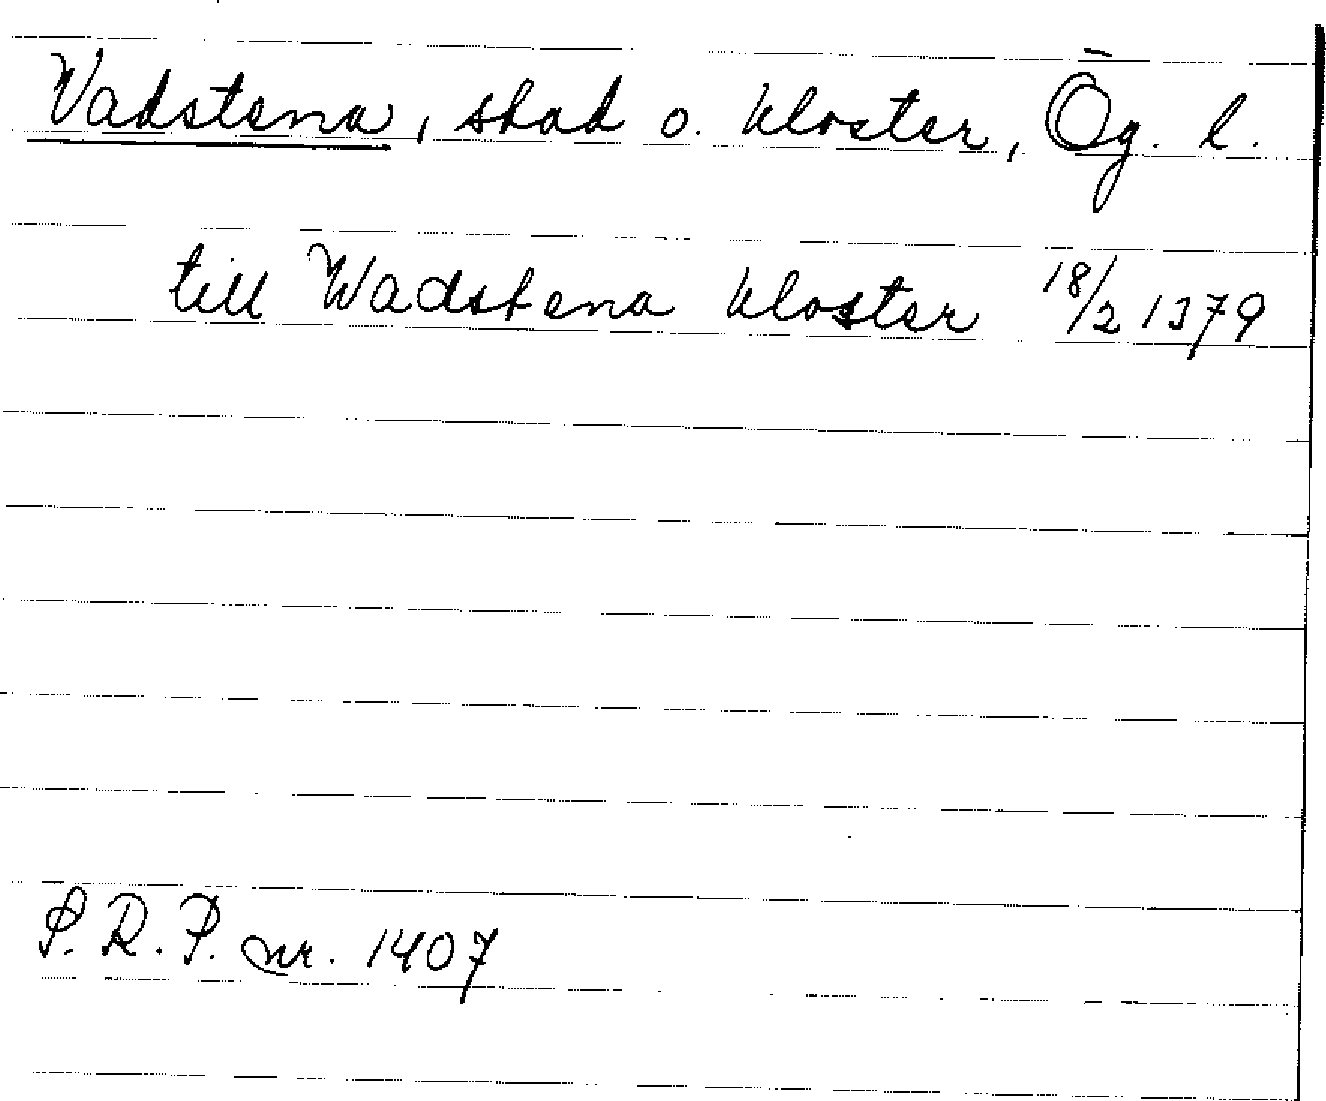 Vadstena, stad o. kloster, Ög. l.
till Wadstena kloster 18/2 1379
S.R.P. nr. 1407